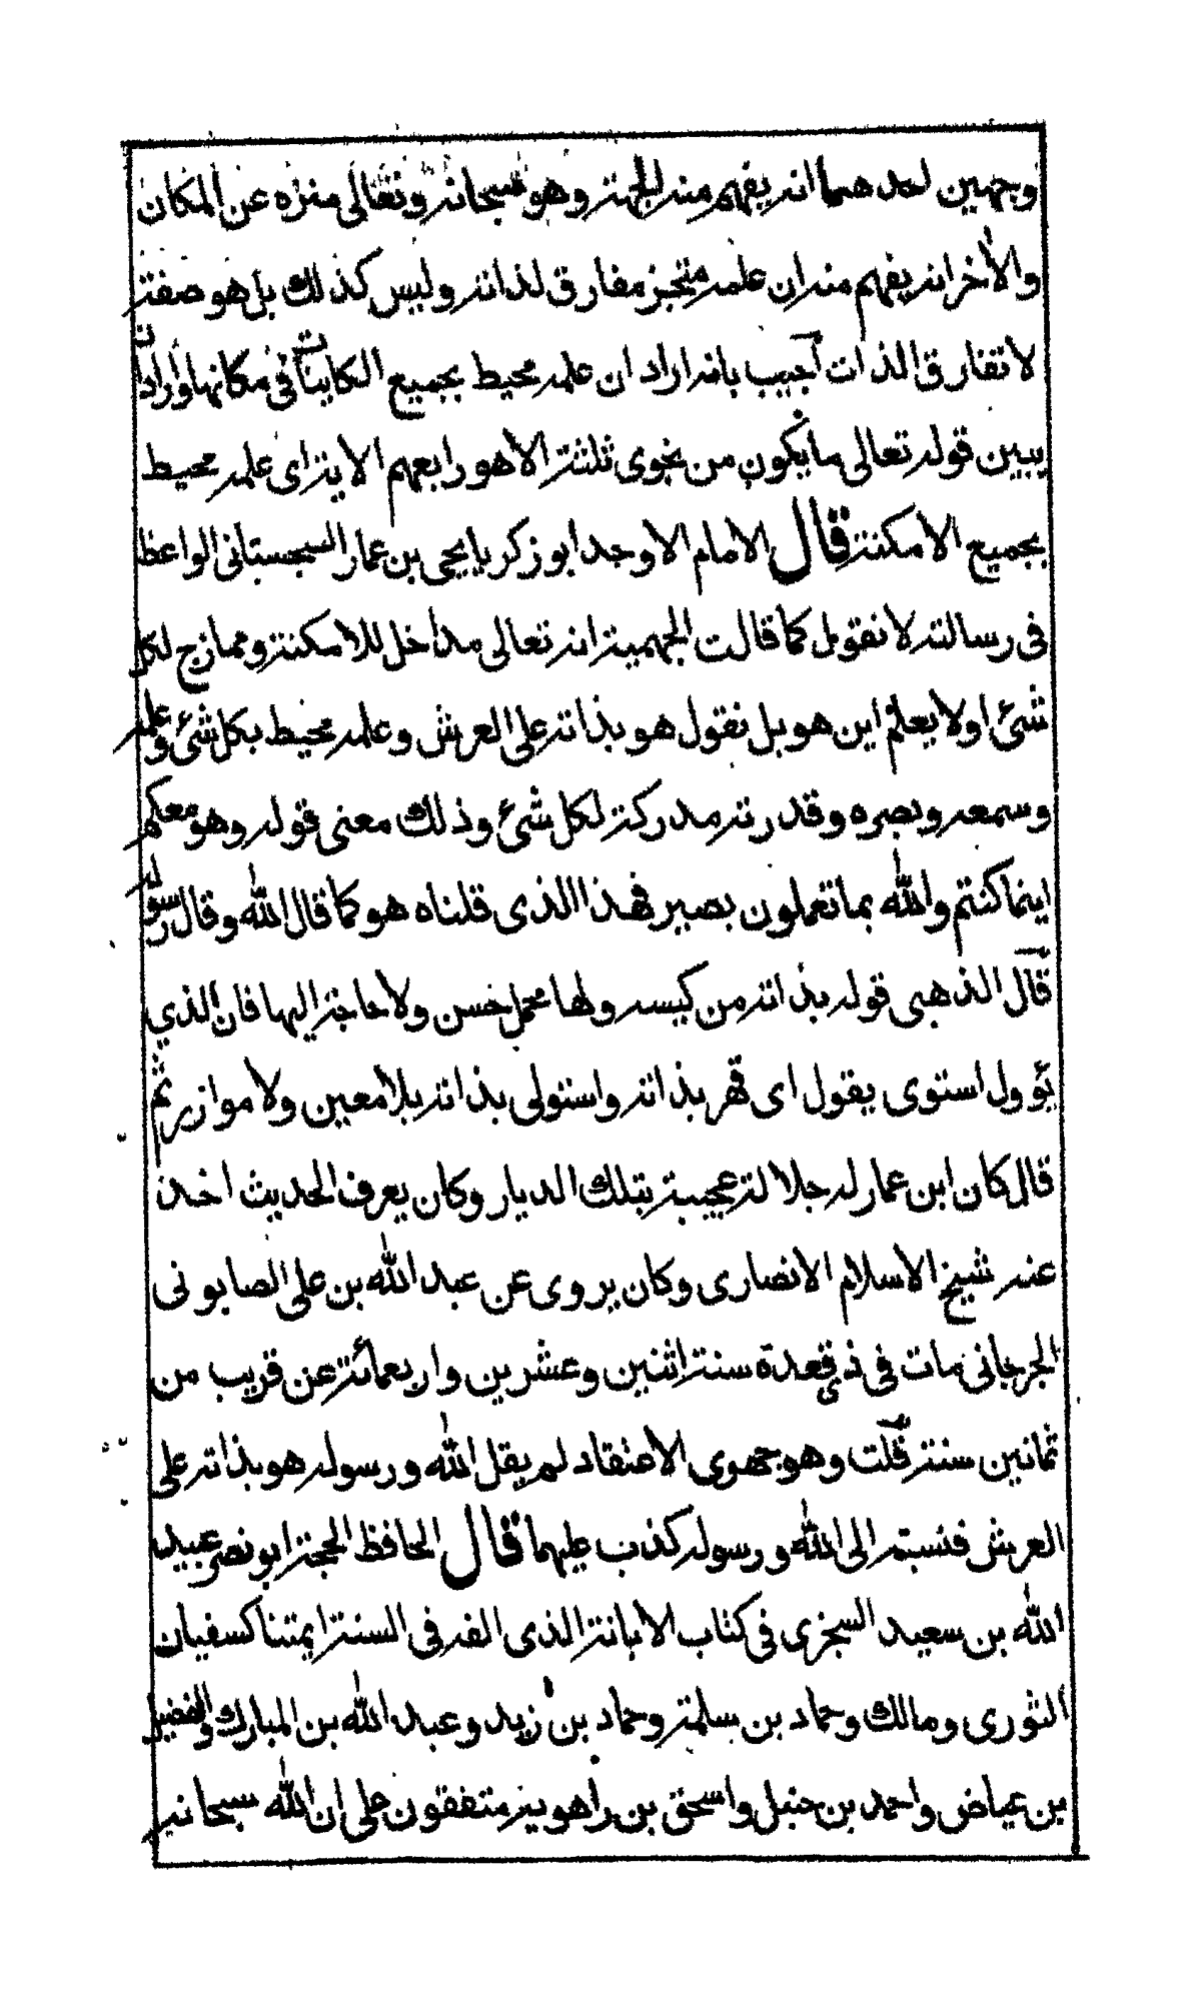 وجهين احدهما انه يفهم منه الجهة وهو سبحانه وتعالى منزه عن المكان
والأخر انه يفهم منه ان علمه متحيز مفارق لذاته وليس كذلك بل هو صفة
لا تفارق الذات أجيب بانه اراد ان علمه محيط بجميع الكاينات في مكانها واراد ان
يبين قوله تعالى ما يكون من نجوى ثلثة الا هو رابعهم الاية اى علمه محيط
بجميع الامكنة قال الامام الاوحد ابو زكريا يحيى بن عمار السجستاني الواعظ
في رسالته لا نقول كما قالت الجهمية انه تعالى مداخل للامكنة وممازج لكل
شئ اولا يعلم اين هو بل نقول هو بذاته على العرش وعلمه محيط بكل شئ وعلمه
وسمعه وبصره وقدرته مدركة لكل شئ وذلك معنى قوله وهو معكم
اينما كنتم والله بما تعملون بصير فهذا الذى قلناه هو كما قال الله وقال رسوله
قال الذهبى قوله بذاته من كيسه ولها محمل حسن ولا حاجة اليها فان الذي
يؤول استوى يقول اى قهر بذاته واستولى بذاته بلا معين ولا موازر ثم
قال كان ابن عمار له جلالة عجيبة بتلك الديار وكان يعرف الحديث اخذ
عنه شيخ الاسلام الانصارى وكان يروى عن عبد الله بن على الصابونى
الجرجانى مات في ذى قعدة سنة اثنين وعشرين واربعمائة عن قريب من
ثمانين سنة قلت وهو جهوى الاعتقاد لم يقل الله ورسوله هو بذاته على
العرش فنسبته الى الله ورسوله كذب عليهما قال الحافظ الحجة ابو نصر عبيد
الله بن سعيد السجزى في كتاب الابانة الذى الفه في السنة ايمتنا كسفيان
الثورى ومالك وحماد بن سلمة وحماد بن زيد وعبد الله بن المبارك والفضيل
بن عياض واحمد بن حنبل واسحق بن راهويه متفقون على ان الله سبحانه